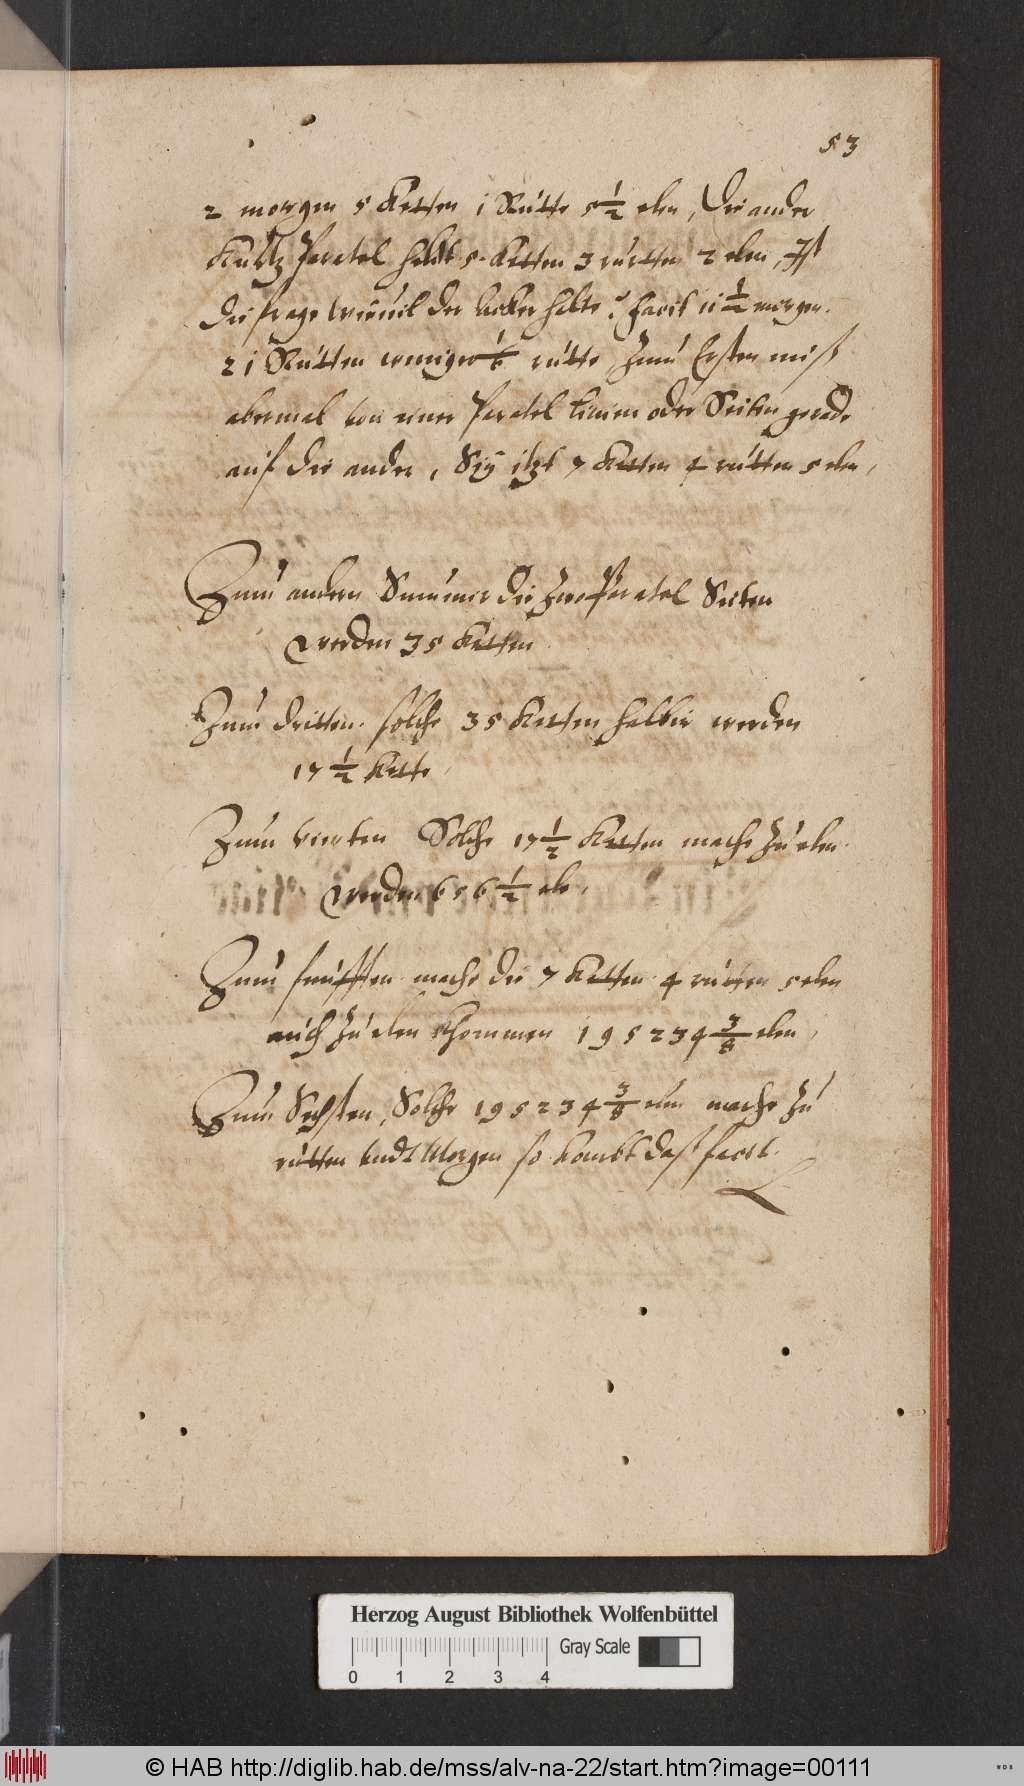 53
2 morgen 5 Ketten 1 Rütte 5 1/2 elen, Die ander
Kurtz Paralel helt 5 Ketten 3 rutten 2 elen, Ist
die frage wieuil der Acker halte? facit 11 1/2 morgen.
21 Rütten weniger 1/6 rütte Zum Ersten miß
abermal von einer Paralel linien oder Seiten gerade
auf die ander, Sÿ itzt 7 Ketten 4 rütten 5 elen,
Zum andern Summer die zwo Paralel Seiten
werden 35 Ketten
Zum dritten. solche 35 Ketten halbir werden
17 1/2 Kette,
Zum vierten Solche 17 1/2 Ketten mache zu elen.
werden 656 1/2 ele,
Zum funfften mache die 7 Ketten 4 rütten 5 elen
auch zu elen khommen 195234 3/8 elen,
Zum Sechsten, Solche 195234 3/8 elen mache zu
rutten vndt Morgen so kombt daß facit.
Herzog August Bibliothek Wolfenbüttel
Gray Scale
0 1 2 3 4
© HAB http://diglib.hab.de/mss/alv-na-22/start.htm?image=00111